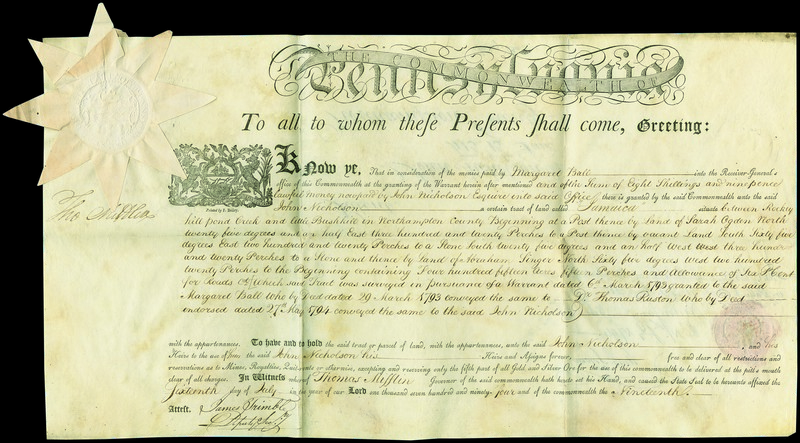 THE COMMONWEALTH OF
Pennsylvania
To all to whom these Presents shall come, Greeting:
Know ye, That in consideration of the monies paid by Margaret Ball into the Receiver-General's
office of this Commonwealth at the granting of the Warrant herein after mentioned and of the Sum of Eight Shillings and nine pence
lawful money now paid by John Nicholson Esquire into said Office there is granted by the said Commonwealth unto the said
John Nicholson a certain tract of land called Jamaica situate between Rocky
hill pond Creek and little Bushkill in Northampton County Beginning at a Post thence by Land of Sarah Ogden North
twenty five degrees and an half East three hundred and twenty Perches to a Post thence by vacant Land South Sixty five
degrees East two hundred and twenty Perches to a Stone South twenty five degrees and an half West three hundred
and twenty Perches to a Stone and thence by land of Abraham Singer North Sixty five degrees west two hundred
twenty Perches to the Beginning containing Four hundred fifteen Acres fifteen Perches and Allowance of Six P Cent
for Roads &c Which said Tract was surveyed in pursuance of a Warrant dated 6th March 1793 granted to the said
Margaret Ball Who by Deed dated 29 March 1793 conveyed the same to Dr Thomas Ruston Who by Deed
endorsed dated 27th May 1794 conveyed the same to the said John Nicholson
with the appurtenances. To have and to hold the said tract or parcel of land, with the appurtenances, unto the said John Nicholson and his
Heirs to the use of him the said John Nicholson his Heirs and Assigns forever, free and clear of all restrictions and
reservations as to Mines, Royalties, Quit-rents or otherwise, excepting and reserving only the fifth part of all Gold and Silver Ore for the use of this commonwealth to be delivered at the pit's mouth
clear of all charges. In Witness whereof Thomas Mifflin Governor of the said commonwealth hath hereto set his Hand, and caused the State Seal to be hereunto affixed the
Sixteenth day of July in the year of our Lord one thousand seven hundred and ninety four and of the commonwealth the Nineteenth.
Attest. James Trimble
Deputy Secy
Tho Mifflin